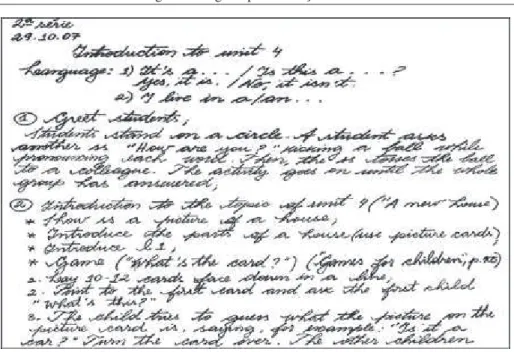 2ª série
29.10.07
Introduction to unit 4
Language: 1) It's a . . . / Is this a . . . ?
Yes, it is. / No, it isn't.
2) I live in a/an . . .
① Greet students;
Students stand on a circle. A student asks
another ss "How are you?" kicking a ball while
pronouncing each word. Then, the ss tosses the ball
to a colleague. The activity goes on until the whole
group has answered;
② Introduction to the topic of unit 4 ("A new house)
* Show ss a picture of a house;
* Introduce the parts of a house (use picture cards)
* Introduce L1;
* Game ("What's the card?") ("Games for children", p.
1. Lay 10-12 cards face down in a line;
2. Point to the first card and ask the first child
"What's this?"
3. The child tries to guess what the picture on the
picture card is, saying, for example: "Is it a
car?" Turn the card over. The other children